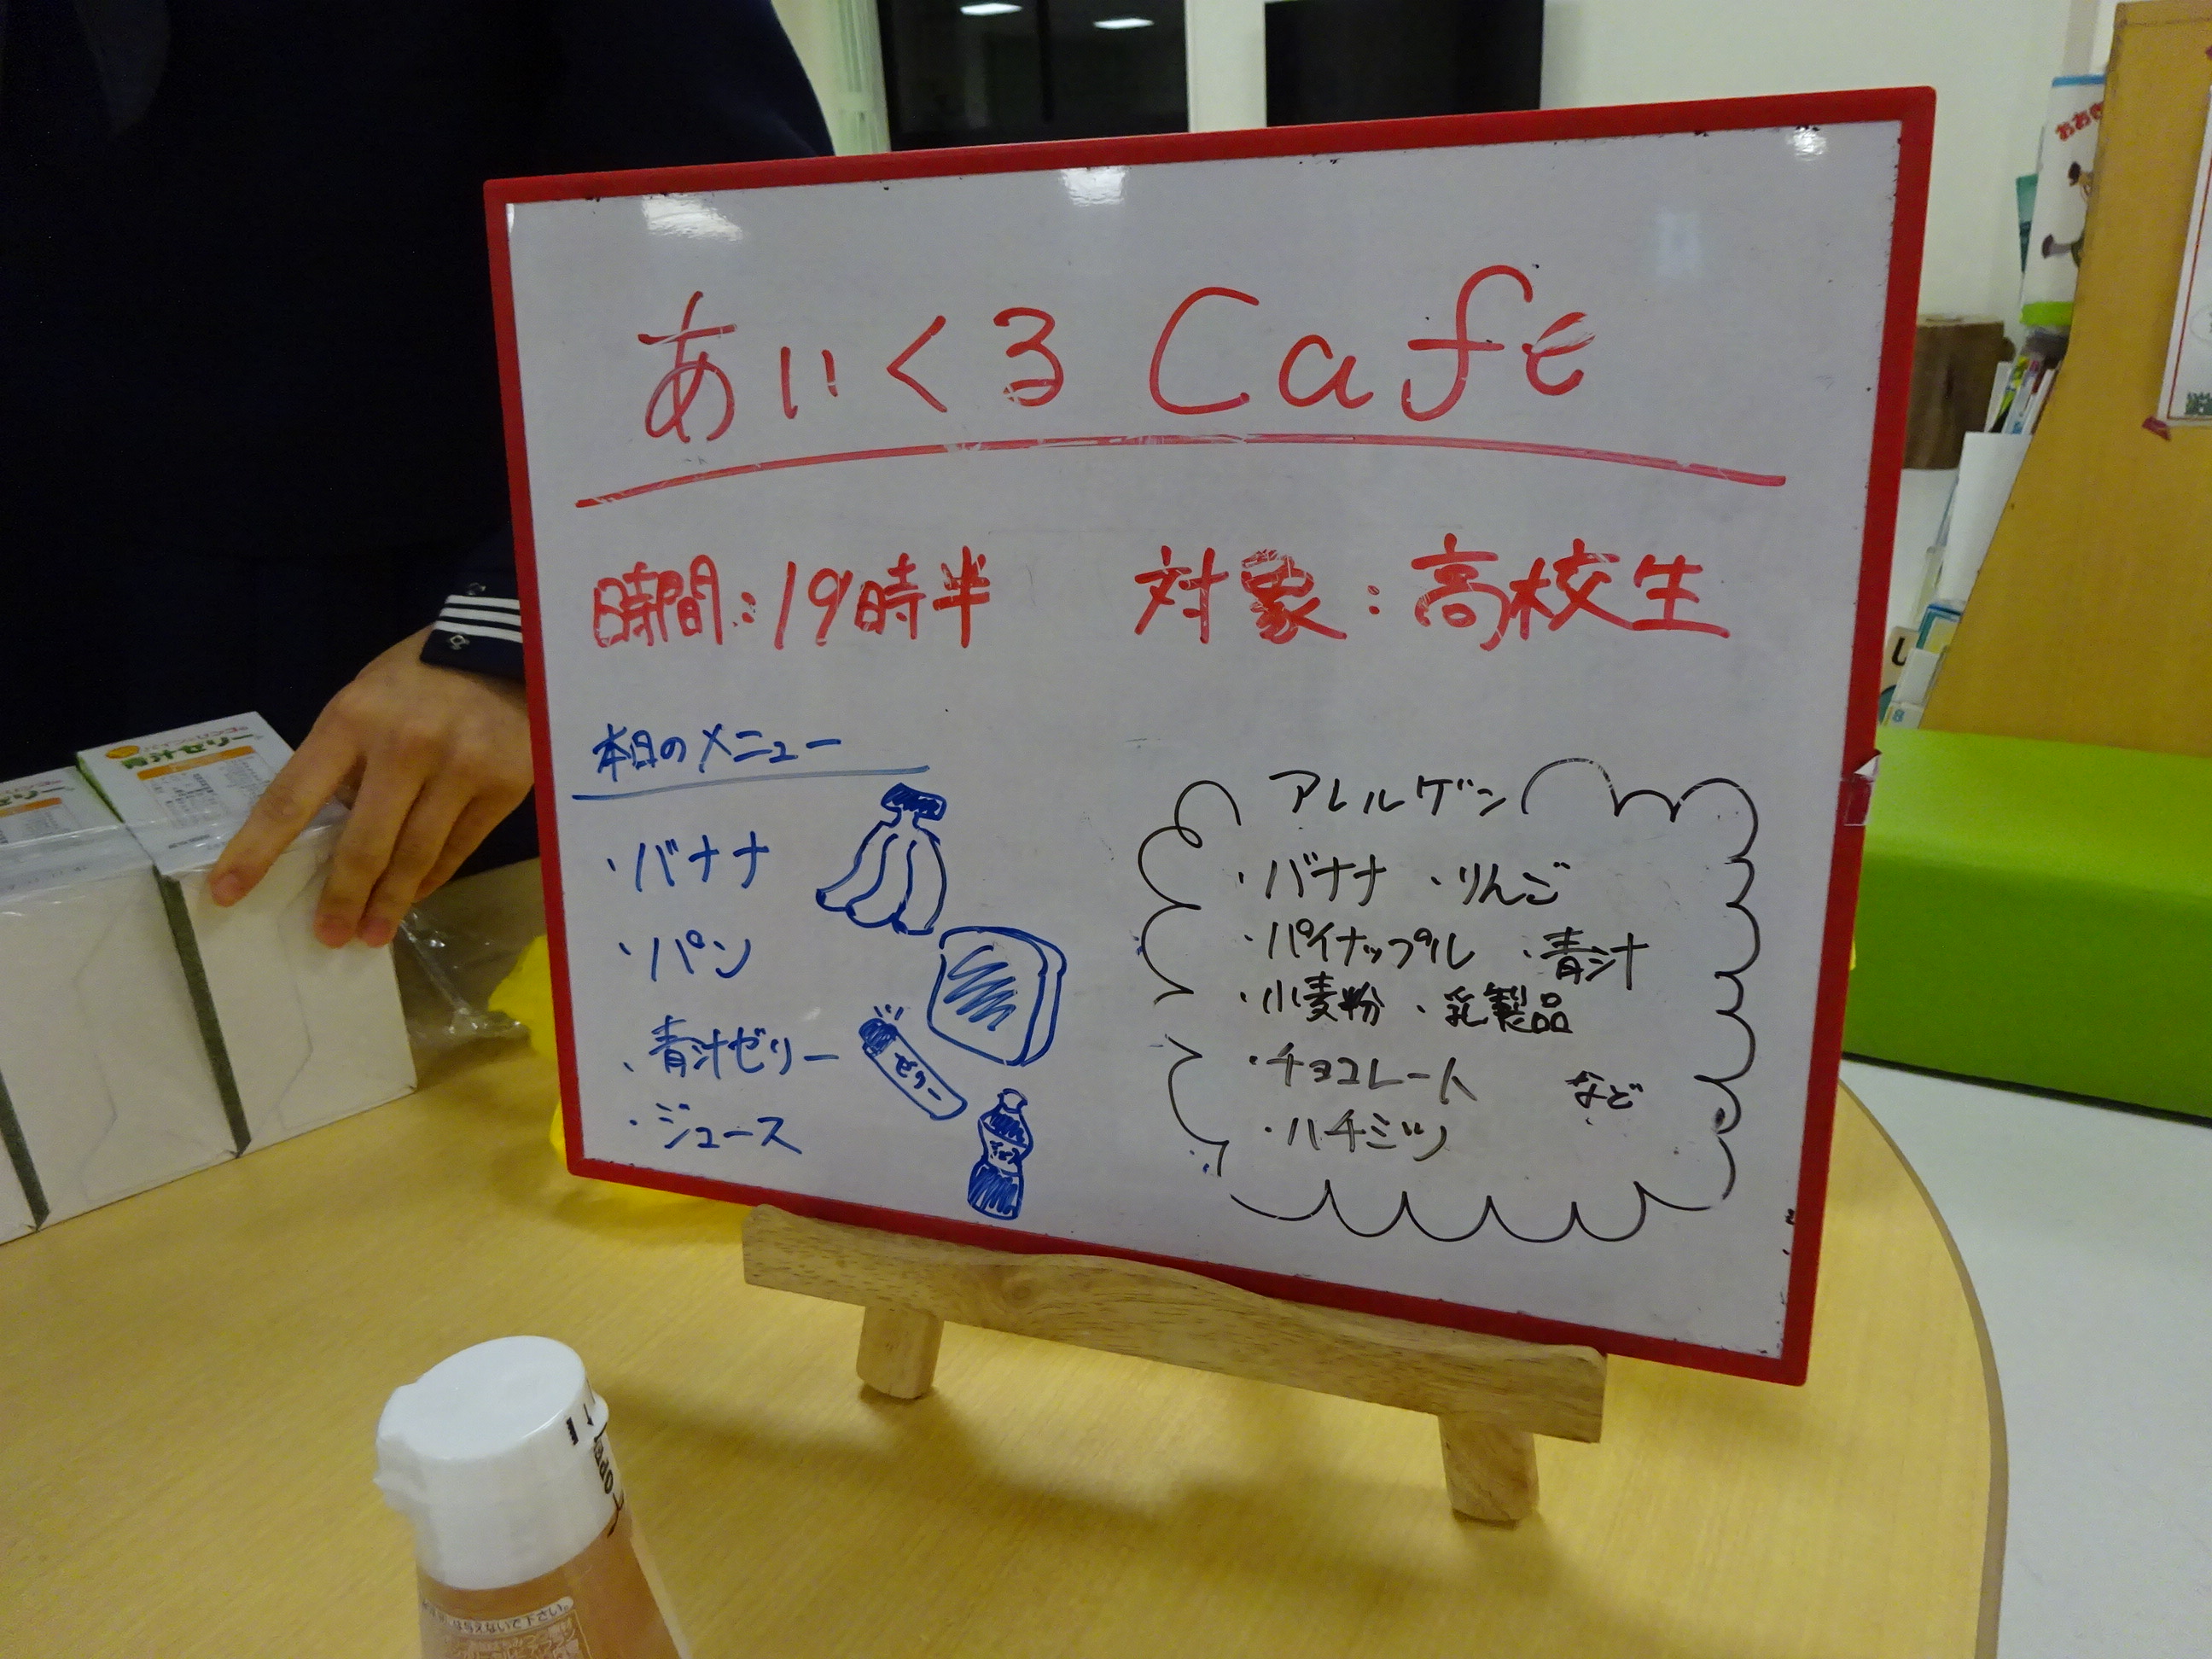 あいくるCafe
時間:19時半 対象:高校生
本日のメニュー
・バナナ
・パン
・青汁ゼリー
ゼリー
・ジュース
アレルゲン
・バナナ ・りんご
・パイナップル ・青汁
・小麦粉 ・乳製品
・チョコレート など
・ハチミツ